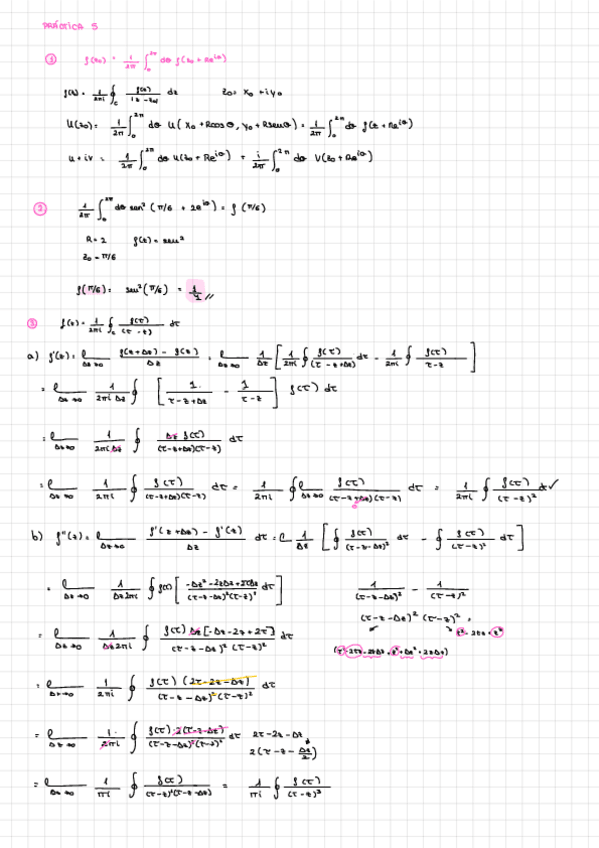 PRÁCTICA 5
① f(z₀) = 1/2π ∫₀^2π dθ f(z₀ + Re^iθ)
f(z) = 1/2πi ∮_c f(z)/(z - z₀) dz z₀ = x₀ + iy₀
U(z₀) = 1/2π ∫₀^2π dθ U(x₀ + Rcosθ, y₀ + Rsenθ) = 1/2π ∫₀^2π dθ f(z + Re^iθ)
u + iv = 1/2π ∫₀^2π dθ U(z₀ + Re^iθ) + i/2π ∫₀^2π dθ V(z₀ + Re^iθ)
② 1/2π ∫₀^2π dθ sen² (π/6 + 2e^iθ) = f(π/6)
R = 2 f(z) = sen²
z₀ = π/6
f(π/6) = sen²(π/6) = 1/4 //
③ f(z) = 1/2πi ∮_c f(τ)/(τ - z) dτ
a) f'(z) = l_Δz→0 f(z+Δz) - f(z) / Δz = l_Δz→0 1/Δz [ 1/2πi ∮ f(τ)/(τ - z+Δz) dτ - 1/2πi ∮ f(τ)/τ-z ]
= l_Δz→0 1/2πi Δz ∮ [ 1/τ-z+Δz - 1/τ-z ] f(τ) dτ
= l_Δz→0 1/2πi Δz ∮ Δz f(τ)/(τ-z+Δz)(τ-z) dτ
= l_Δz→0 1/2πi ∮ f(τ)/(τ-z+Δz)(τ-z) dτ = 1/2πi ∮ l_Δz→0 f(τ)/(τ-z+Δz)(τ-z) = 1/2πi ∮ f(τ)/(τ-z)² dτ ✓
b) f''(z) = l_Δz→0 f'(z+Δz) - f'(z) / Δz dτ = l 1/Δz [ ∮ f(τ)/(τ-z-Δz)² dτ - ∮ f(τ)/(τ-z)² dτ ]
= l_Δz→0 1/Δz2πi ∮ f(τ) [ -Δz² -2zΔz + 2τΔz / (τ-z-Δz)²(τ-z)² ] dτ 1/(τ-z-Δz)² - 1/(τ-z)²
(τ-z-Δz)² (τ-z)²
= l_Δz→0 1/Δz2πi ∮ f(τ) Δz [-Δz -2z + 2τ] / (τ-z-Δz)² (τ-z)² dτ
= l_Δz→0 1/2πi ∮ f(τ) (2τ-2z-Δz) / (τ-z-Δz)²(τ-z)² dτ
= l_Δz→0 1/2πi ∮ f(τ) 2(τ-z-Δz) / (τ-z-Δz)²(τ-z)² dτ 2τ-2z-Δz
2(τ-z-Δz/2)
= l_Δz→0 1/πi ∮ f(τ)/(τ-z)²(τ-z-Δz) = 1/πi ∮ f(τ)/(τ-z)³